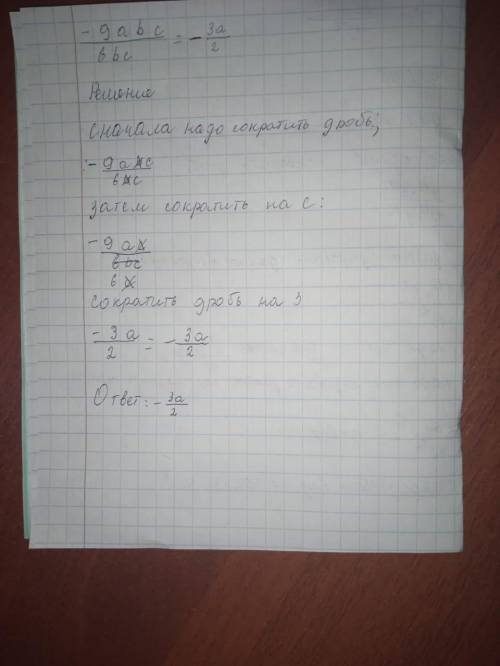 - 9abc / 6bc = - 3a / 2
Решение
Сначала надо сократить дробь;
- 9abc / 6bc
Затем сократить на c:
- 9ac / 6bc
6c
Сократить дробь на 3
- 3a / 2 = - 3a / 2
Ответ: - 3a / 2